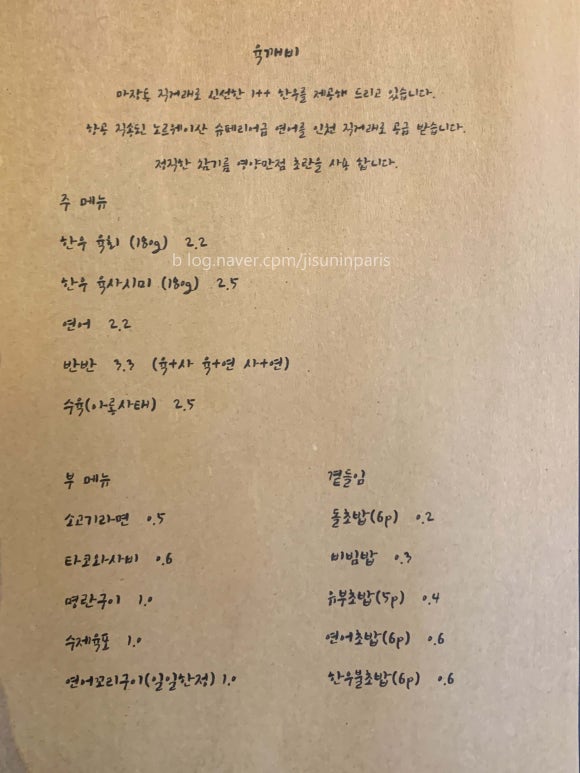 육깨비
마장동 직거래로 신선한 1++ 한우를 제공해 드리고 있습니다.
항공 직송된 노르웨이산 슈페리어급 연어를 인천 직거래로 공급 받습니다.
정직한 참기름 영양만점 초란을 사용 합니다.
주 메뉴
한우 육회 (180g) 2.2
b log.naver.cpm/jisuninparis
한우 육사시미 (180g) 2.5
연어 2.2
반반 3.3 (육+사 육+연 사+연)
수육(아롱사태) 2.5
부 메뉴
소고기라면 0.5
타코와사비 0.6
명란구이 1.0
수제육포 1.0
연어꼬리구이(일일한정) 1.0
곁들임
돌초밥(6p) 0.2
비빔밥 0.3
유부초밥(5p) 0.4
연어초밥(6p) 0.6
한우불초밥(6p) 0.6